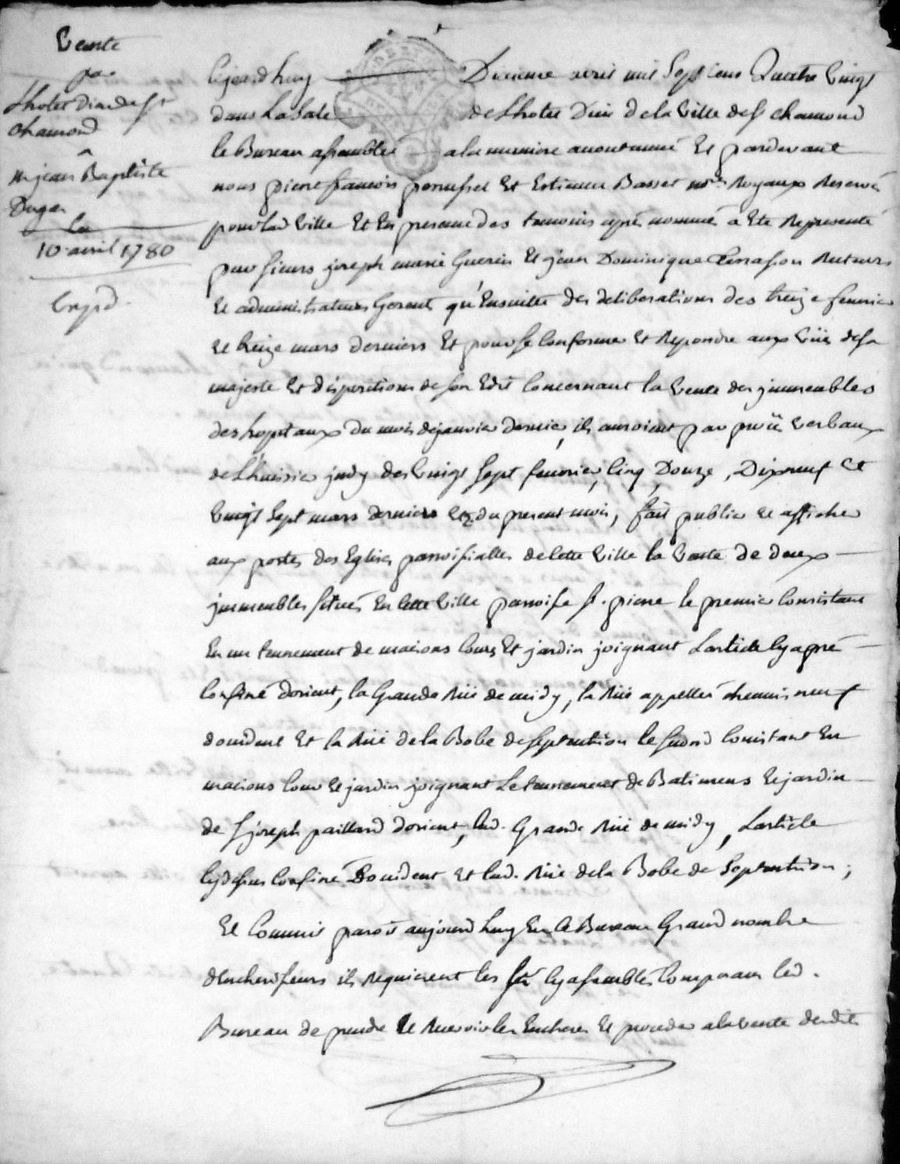 Vente
par
Lhotel Dieu de St
chamond
a
mr jean Baptiste
Dugas
Le
10. avril 1780
Expd.
Cejourdhuy Dixieme avril mil Sept cens Quatre Vingt
dans La Sale de Lhotel Dieu de la Ville de St chamond
le Bureau assemblé a la maniere accoutumée Et pardevant
nous pierre francois perrussel Et Estienne Basset nres Royaux Reservés
pour lad Ville Et En presence des temoins apres nommés a Eté Representé
par sieurs joseph marie Guerin Et jean Dominique Terrasson Recteurs
Et administrateurs Gerent qu'Ensuitte des deliberations des treize fevrier
et treize mars derniers Et pour se conformer et Repondre aux vües de sa
majesté Et dispositions de son Edit Concernant la Vente des jmmeubles
des hopitaux du mois de janvier dernier, ils auroient par procü verbaux
de Lhuissier judy des Vingt Sept fevrier, Cinq, Douze, Dixneuf et
Vingt Sept mars derniers et du present mois, fait publier et afficher
aux portes des Eglises parroissialles de cette Ville la Vente de deux
jmmeubles situés En cette Ville parroisse St. pierre le premier Consistant
En un tenement de maisons Cour Et jardin joignant Larticle cy apré
Confiné dorient, la Grande Rüe de midy, la Rüe appellée chemin neuf
doccident Et la Rüe de la Bobe de septentrion le second Consistant En
maisons Cour et jardin joignant Le tenement de Batimens et jardin
de Sr joseph paillard dorient, lad. Grande Rüe de midy, Larticle
cy dessus Confiné Doccident Et lad. Rüe de la Bobe de Septentrion;
Et Comme il paroit aujourdhuy En ce Bureau Grand nombre
d'Encherisseurs ils Requierent les Srs cy assemblés Composans led.
Bureau de prendre et Recevoir les Encheres Et proceder a la vente desdits